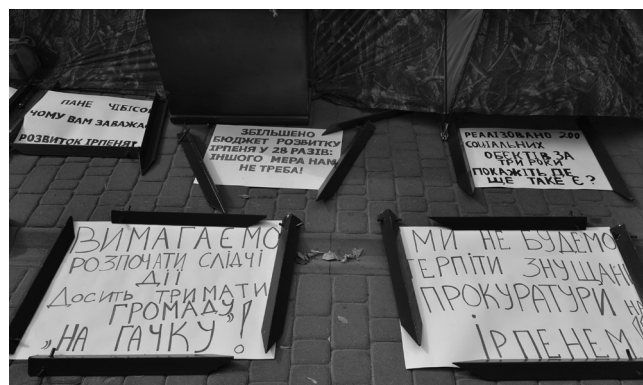 ПАНЕ ЧІБІСО
ЧОМУ ВАМ ЗАВАЖА
РОЗВИТОК ІРПЕНЯ
ЗБІЛЬШЕНО
БЮДЖЕТ РОЗВИТКУ
ІРПЕНЯ У 28 РАЗІВ:
ІНШОГО МЕРА НАМ
НЕ ТРЕБА!
РЕАЛІЗОВАНО 200
СОЦІАЛЬНИХ
ОБЕКТІВ ЗА
ТРИ РОКИ
ПОКАЖІТЬ ДЕ
ЩЕ ТАКЕ Є?
ВИМАГАЄМО
РОЗПОЧАТИ СЛІДЧІ
ДІЇ
ДОСИТЬ ТРИМАТИ
ГРОМАДУ
„НА ГАЧКУ"!
МИ НЕ БУДЕМО
ТЕРПІТИ ЗНУЩАН
ПРОКУРАТУРИ
ІРПЕНЕМ